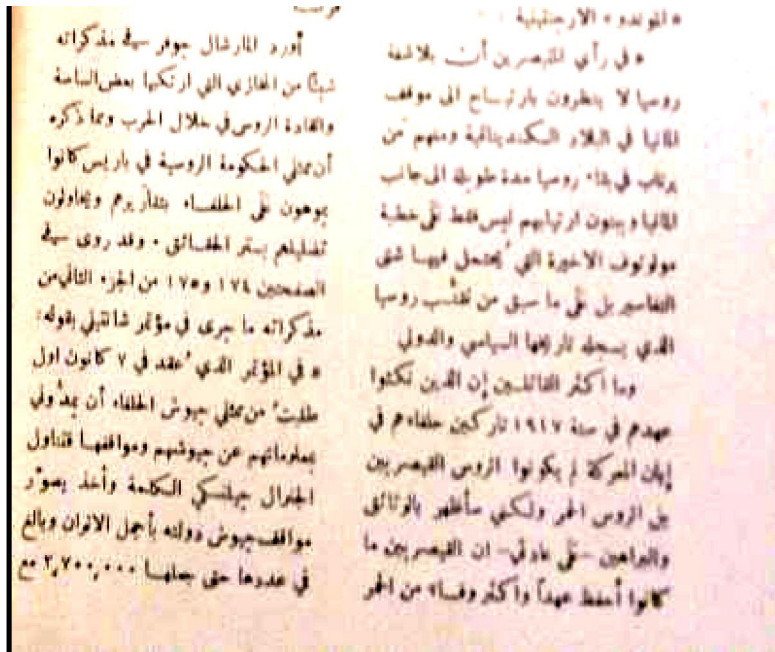 « الموندو » الارجنتينية :
« في رأي المتبصرين أن بلاشفة
روسيا لا ينظرون بارتياح الى موقف
المانيا في البلاد السكندينافية ومنهم من
يرتاب في بقاء روسيا مدة طويلة الى جانب
المانيا ويبنون ارتيابهم ليس فقط على خطبة
مولوتوف الاخيرة التي يُحتمل فيها شتى
التفاسير بل على ما سبق من تقلُّب روسيا
الذي يسجله تاريخها السياسي والدولي
وما اكثر القائلين إن الذين نكثوا
عهدهم في سنة ١٩١٧ تاركين حلفاءهم في
إبان المعركة لم يكونوا الروس القيصريين
بل الروس الحمر ولكني سأظهر بالوثائق
والبراهين – على عادتي – ان القيصريين ما
كانوا أحفظ عهداً واكثر وفاء من الحمر
أورد المارشال جوفر في مذكراته
شيئاً من المخازي التي ارتكبها بعض الساسة
والقادة الروس في خلال الحرب ومما ذكره
أن ممثلي الحكومة الروسية في باريس كانوا
يموهون على الحلفاء بتقاريرهم ويحاولون
تضليلهم بستر الحقائق . وقد روى في
الصفحتين ١٧٤ و ١٧٥ من الجزء الثاني من
مذكراته ما جرى في مؤتمر شانتيلي بقوله :
« في المؤتمر الذي عُقد في ٧ كانون اول
طلبتُ من ممثلي جيوش الحلفاء أن يمدُّوني
بمعلوماتهم عن جيوشهم ومواقفها فتناول
الجنرال جيلنسكي الكلمة وأخذ يصوّر
مواقف جيوش دولته بأجمل الالوان وبالغ
في عددها حتى جعلها ٢,٧٠٠,٠٠٠ مع